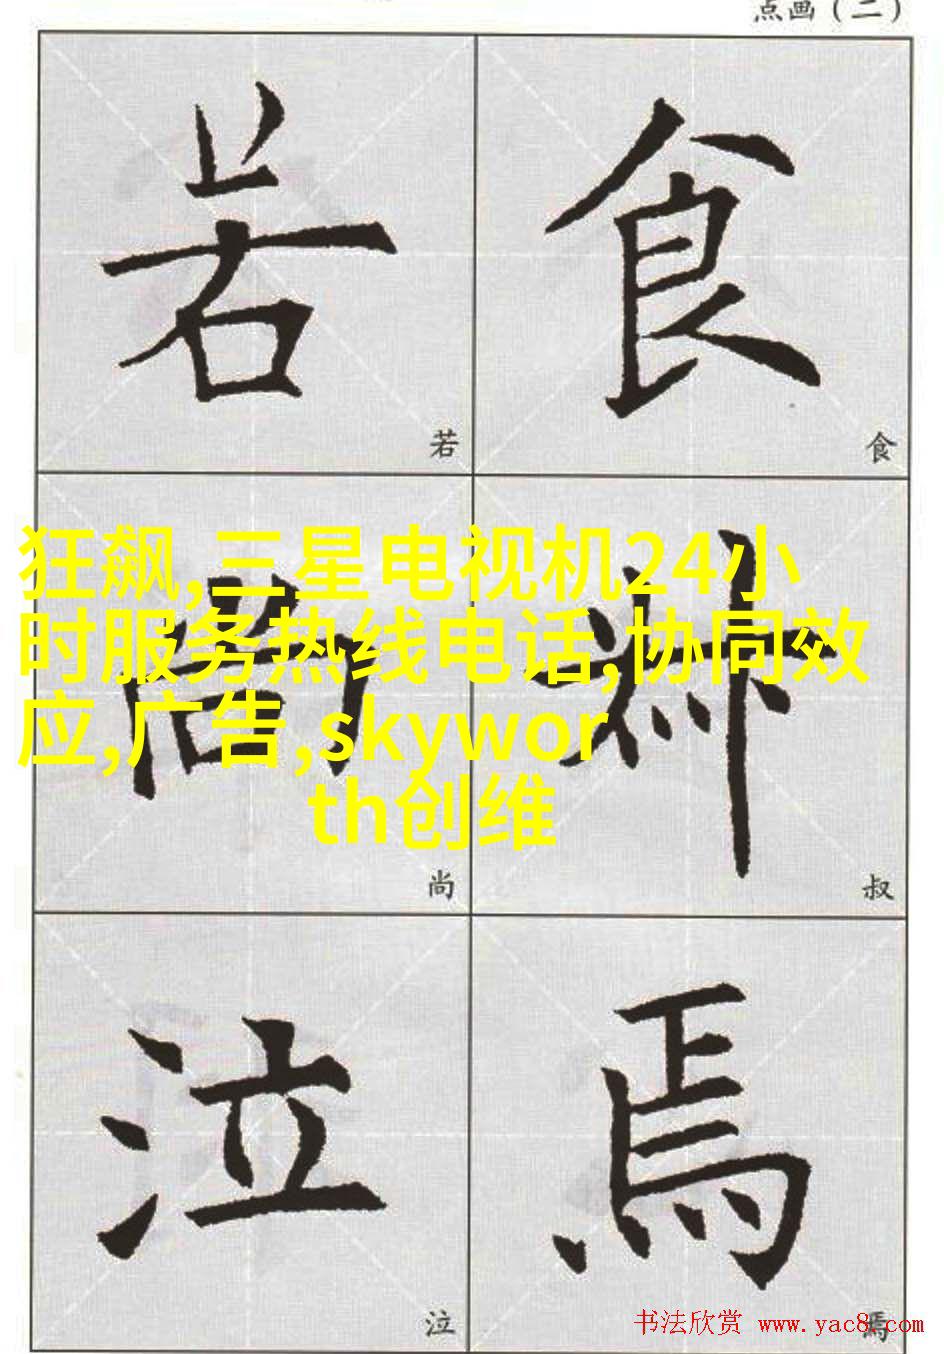 点画（二）
若 食
若 食
狂飙,三星电视机24小
时服务热线电话,协同效
应,广告,skywor
th创维
尚 叔
尚 叔
泣 焉
泣 焉
书法欣赏 www.yac8.com